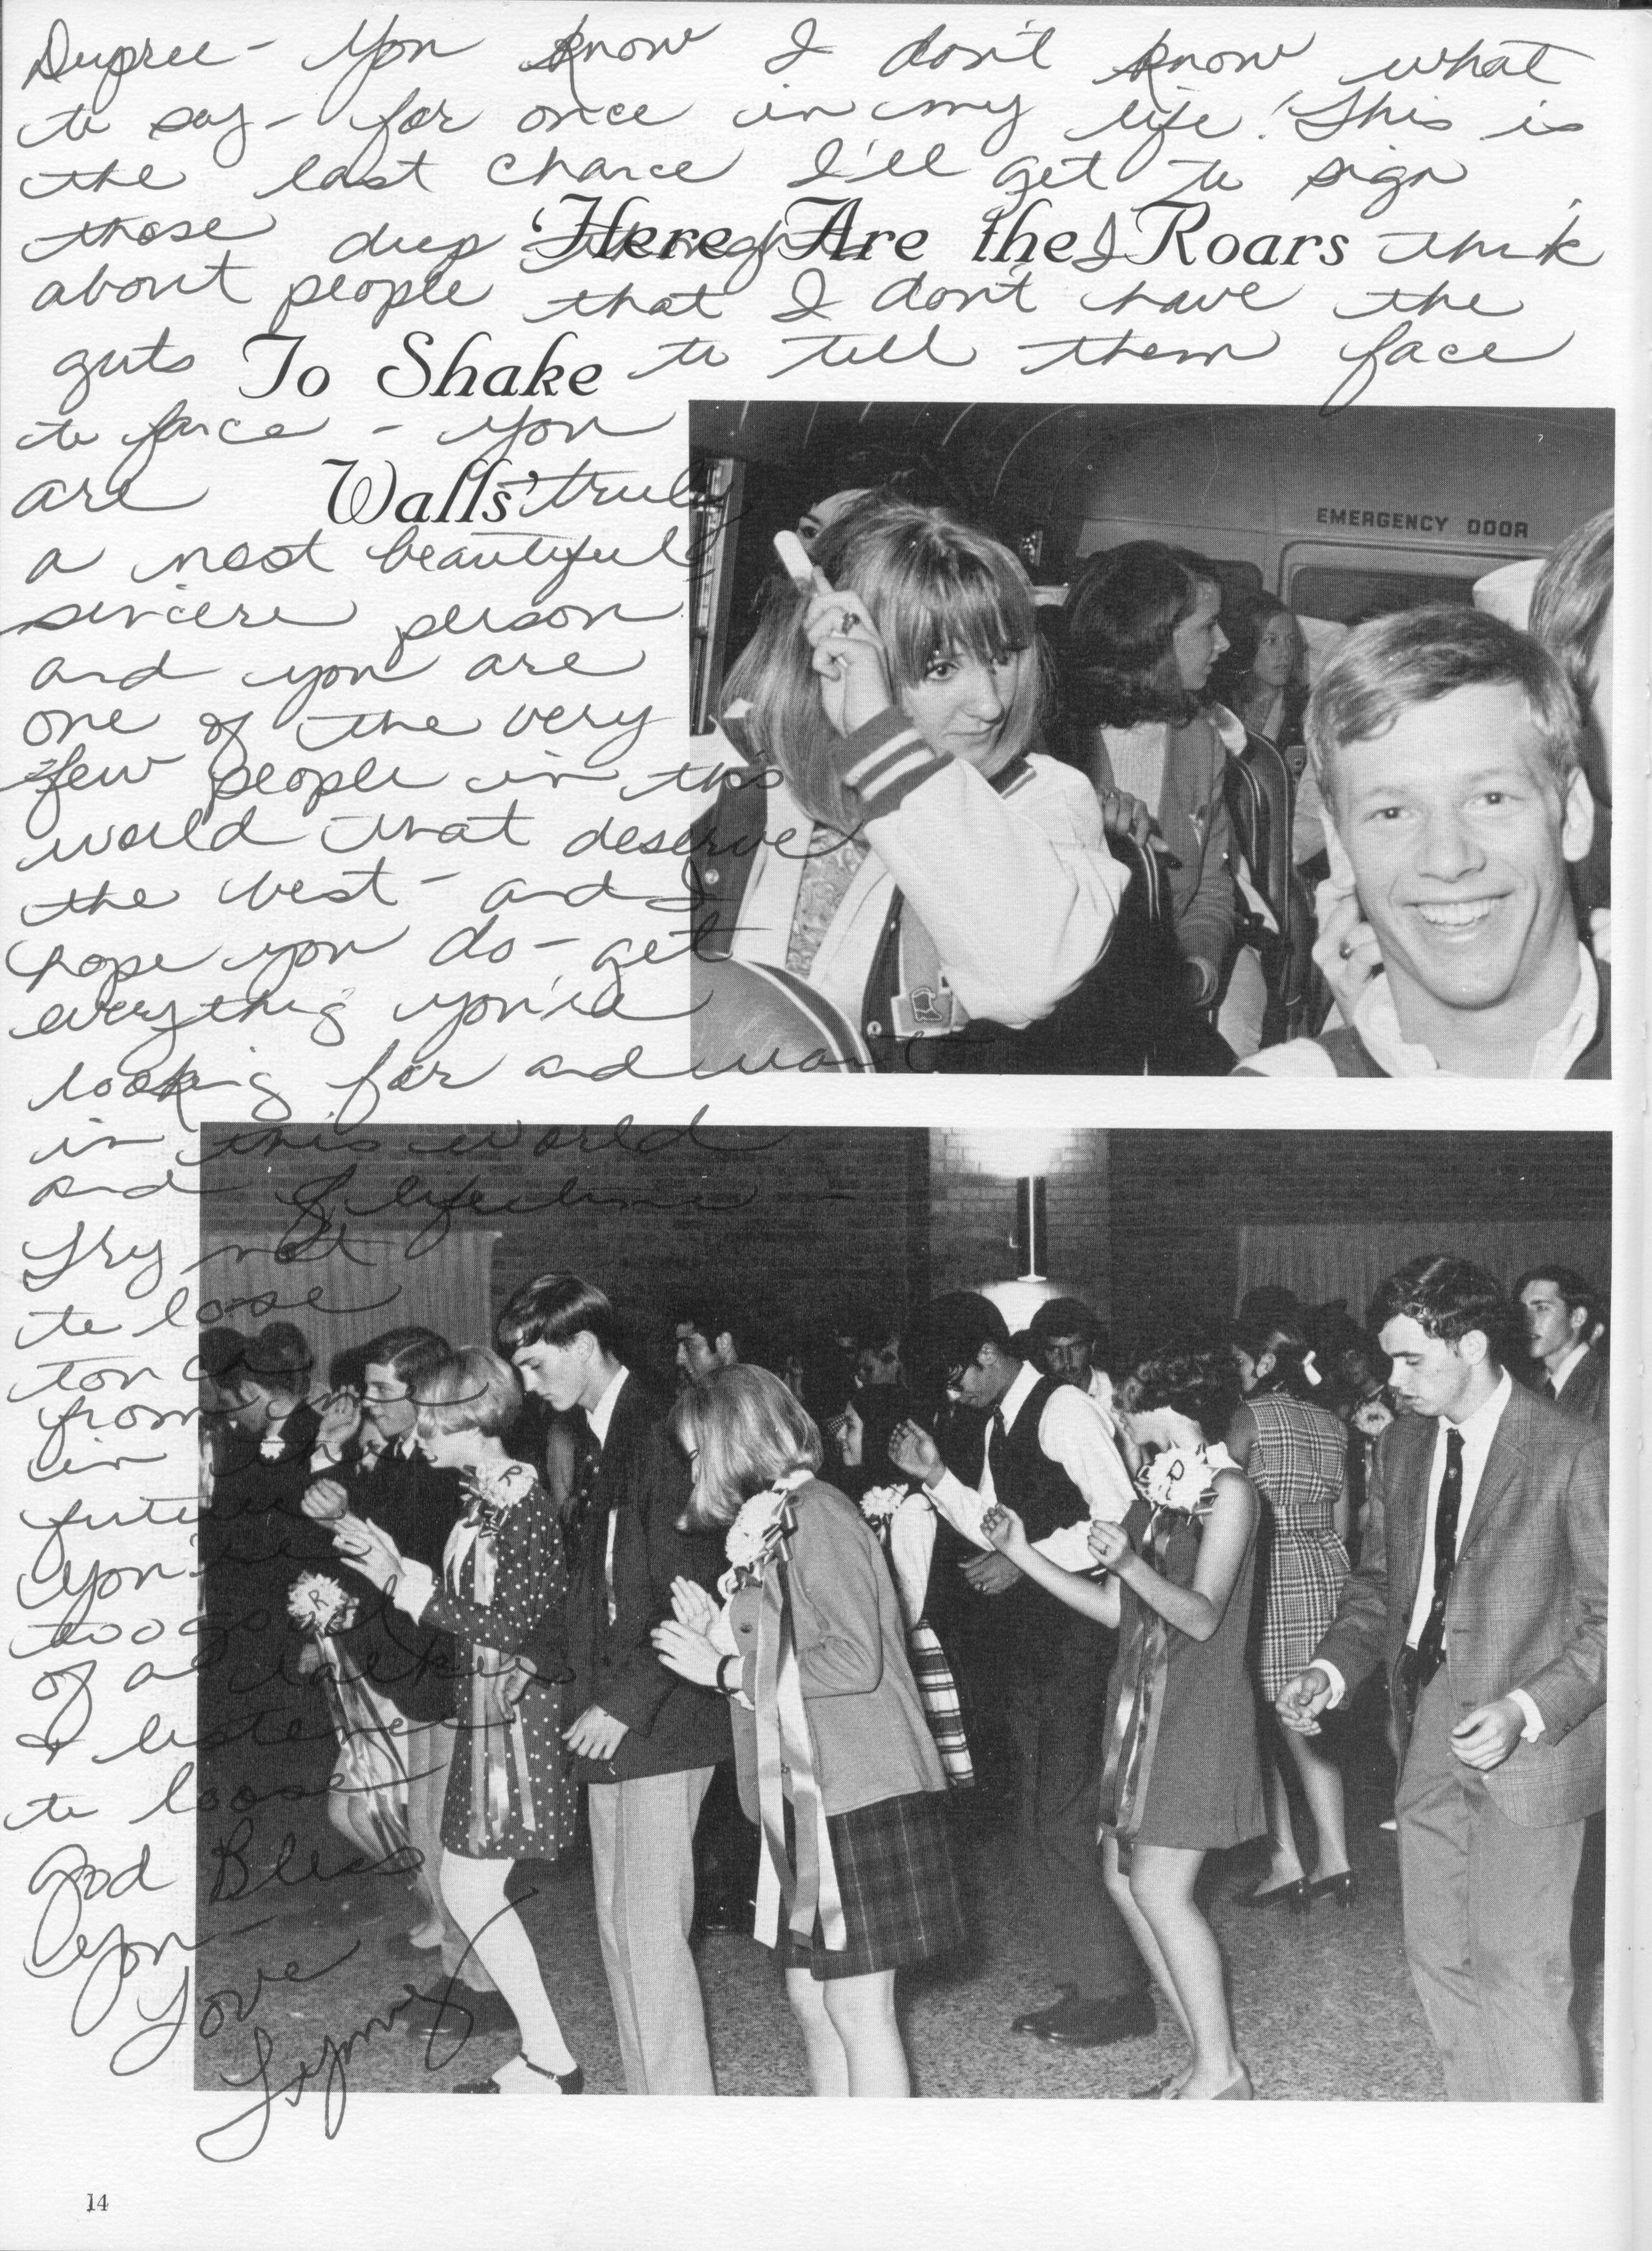 Dupree - You know I don't know what
to say - for once in my life! This is
the last chance I'll get to sign
those deep thoughts I think
'Here Are the Roars
about people that I don't have the
guts to tell them face
To Shake
to face - you
are truly
Walls'
a most beautiful &
sincere person
and you are
one of the very
few people in this
world that deserve
the best - and I
hope you do - get
everything you're
looking for and want
in this world
and lifetime -
Try not
to lose
touch
from me
in the
future
you're
too good
of a talker
& listener
to loose
God Bless
you -
Love
EMERGENCY DOOR
R
R
R
14